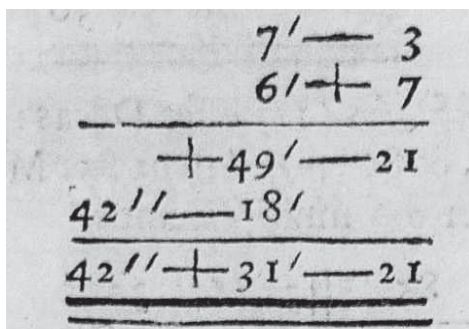 7′— 3
6′+ 7
+49′—21
42′′—18′
42′′+31′—21